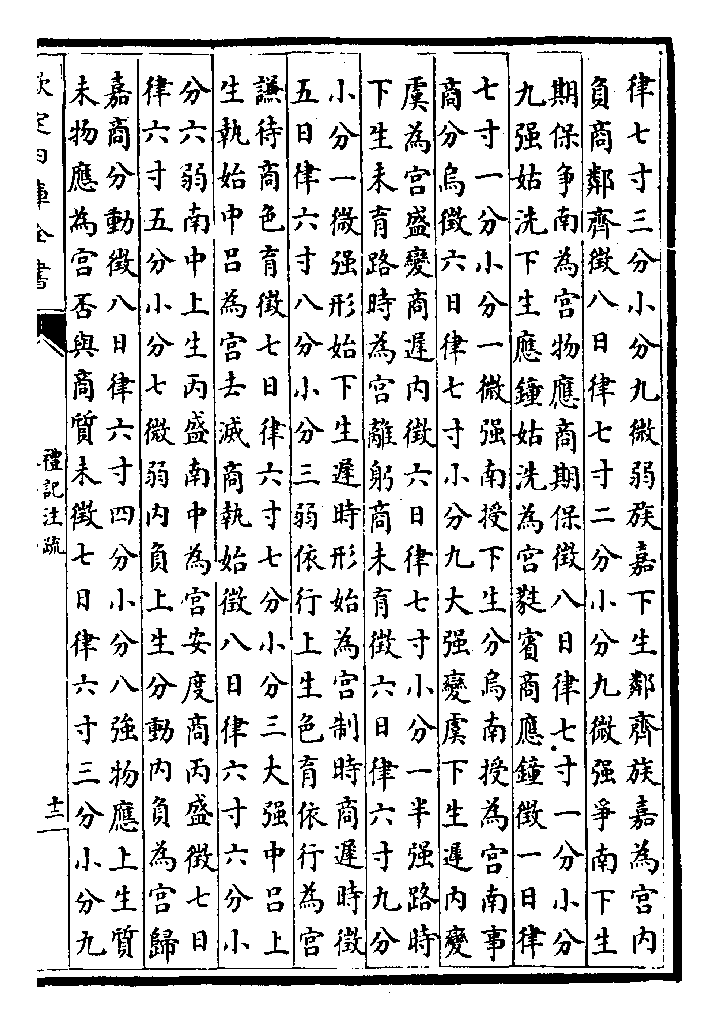 律七寸三分小分九微弱族嘉下生鄰齊族嘉為宮内
負商鄰齊徵八日律七寸二分小分九微强爭南下生
期保爭南為宮物應商期保徵八日律七寸一分小分
九强姑洗下生應鍾姑洗為宮蕤賓商應鍾徵一日律
七寸一分小分一微强南授下生分烏南授為宮南事
商分烏徵六日律七寸小分九大强變虞下生遲内變
虞為宮盛變商遲内徵六日律七寸小分一半强路時
下生未育路時為宮離躬商未育徵六日律六寸九分
小分一微强形始下生遲時形始為宮制時商遲時徵
五日律六寸八分小分三弱依行上生色育依行為宮
謙待商色育徵七日律六寸七分小分三大强中吕上
生執始中吕為宮去滅商執始徵八日律六寸六分小
分六弱南中上生丙盛南中為宮安度商丙盛徵七日
律六寸五分小分七微弱内負上生分動内負為宮歸
嘉商分動徵八日律六寸四分小分八強物應上生質
未物應為宮否與商質未徵七日律六寸三分小分九
欽定四庫全書
禮記注疏
十三